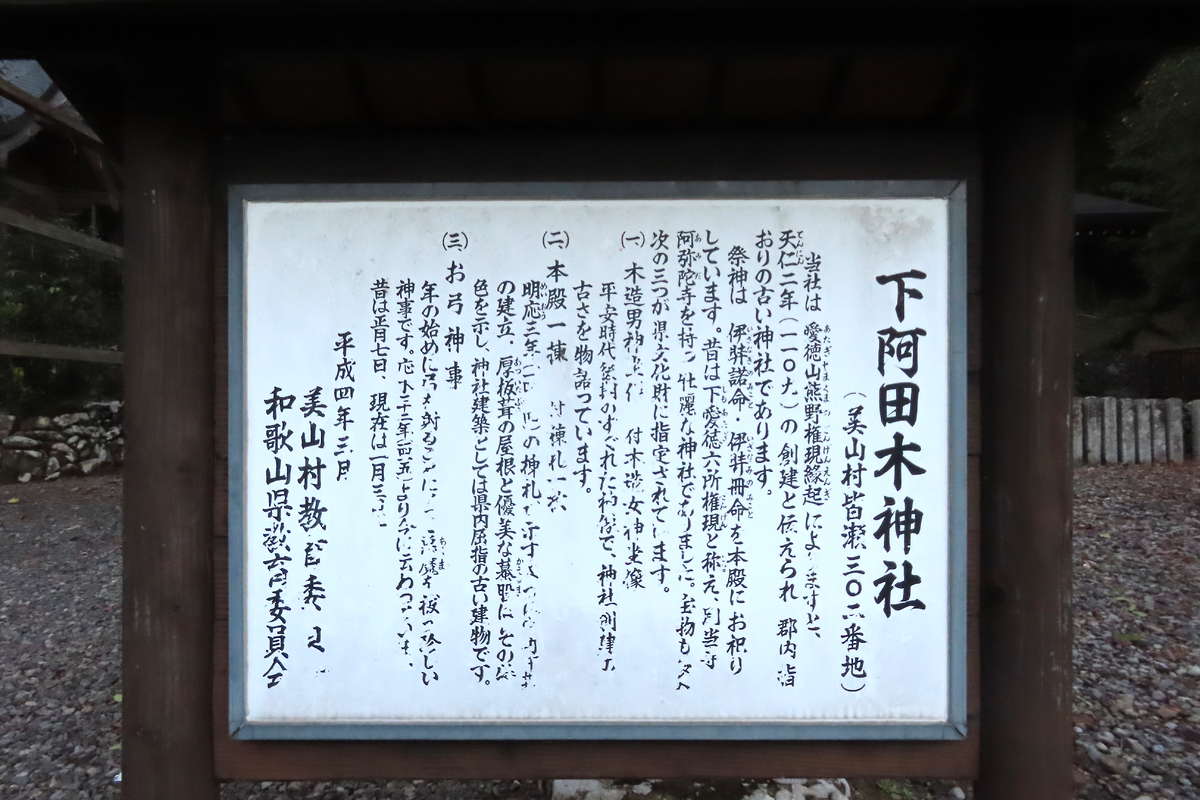 下阿田木神社
(美山村皆瀬三〇二番地)
当社は 愛徳山熊野権現縁起 によりますと、
天仁二年(一一〇九)の創建と伝えられ 郡内 指
おりの古い神社であります。
祭神は 伊弉諾命・伊弉冊命を本殿にお祀り
しています。昔は下愛徳六所権現と称え、別当寺
阿弥陀寺を持つ 壮麗な神社でありました。宝物も多く
次の三つが県文化財に指定されています。
(一) 木造男神坐像 付木造女神坐像
平安時代 のすぐれた神像で、神社創建の
古さを物語っています。
(二) 本殿一棟 付棟札一枚
明応三年 の棟札
の建立、厚板葺の屋根と優美な蟇股に その
色を示し、神社建築としては県内屈指の古い建物です。
(三) お弓神事
年の始めに弓を射ることによって 祓う珍しい
神事です。 今に伝わっています、
昔は正月七日、現在は一月三日
平成四年三月
美山村教育委員
和歌山県教育委員会